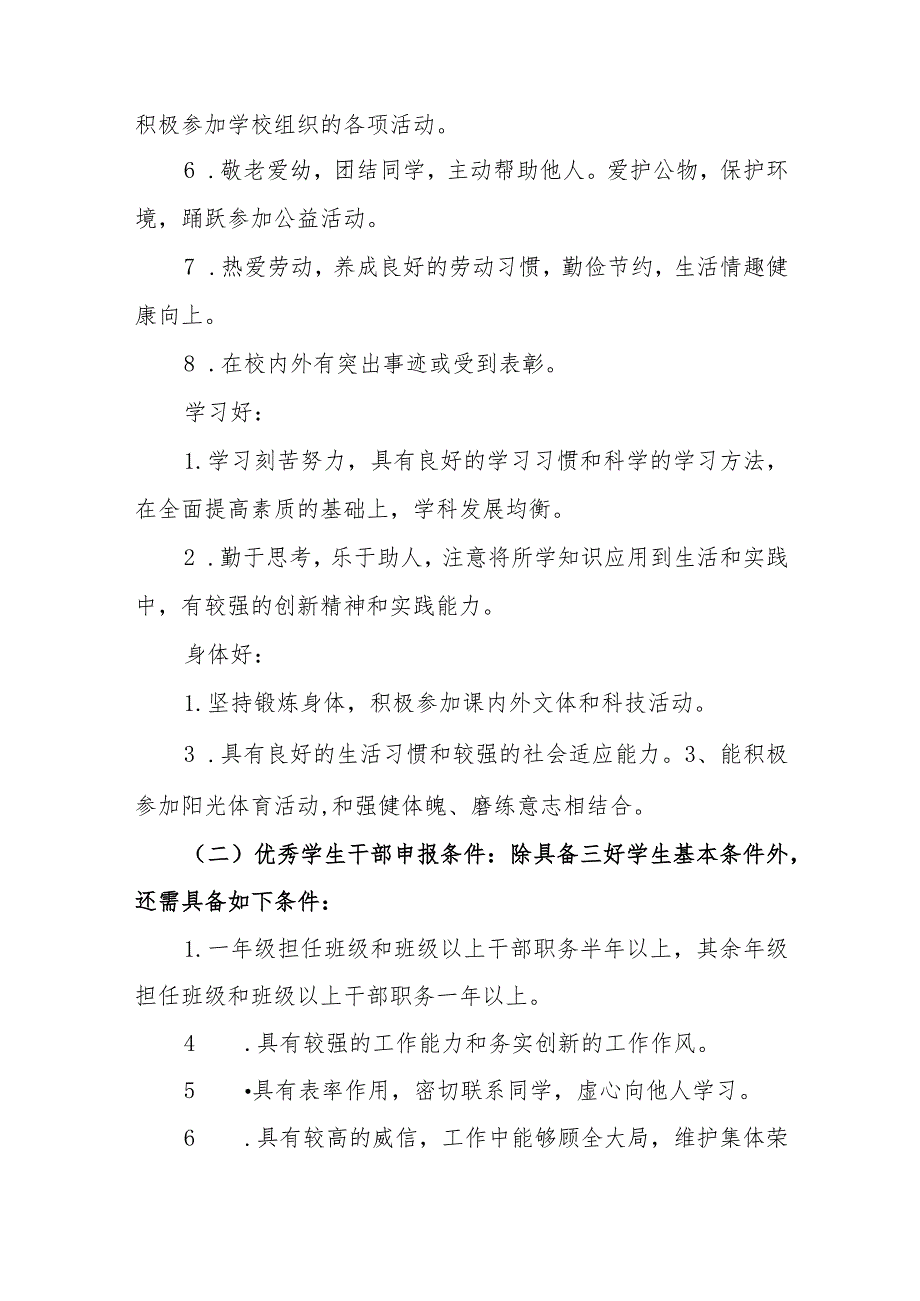 积极参加学校组织的各项活动。
6 .敬老爱幼，团结同学，主动帮助他人。爱护公物，保护环
境，踊跃参加公益活动。
7 .热爱劳动，养成良好的劳动习惯，勤俭节约，生活情趣健
康向上。
8 .在校内外有突出事迹或受到表彰。
学习好：
1.学习刻苦努力，具有良好的学习习惯和科学的学习方法，
在全面提高素质的基础上，学科发展均衡。
2 .勤于思考，乐于助人，注意将所学知识应用到生活和实践
中，有较强的创新精神和实践能力。
身体好：
1.坚持锻炼身体，积极参加课内外文体和科技活动。
3 .具有良好的生活习惯和较强的社会适应能力。3、能积极
参加阳光体育活动,和强健体魄、磨练意志相结合。
（二）优秀学生干部申报条件：除具备三好学生基本条件外，
还需具备如下条件：
1.一年级担任班级和班级以上干部职务半年以上，其余年级
担任班级和班级以上干部职务一年以上。
4 .具有较强的工作能力和务实创新的工作作风。
5 •具有表率作用，密切联系同学，虚心向他人学习。
6 .具有较高的威信，工作中能够顾全大局，维护集体荣